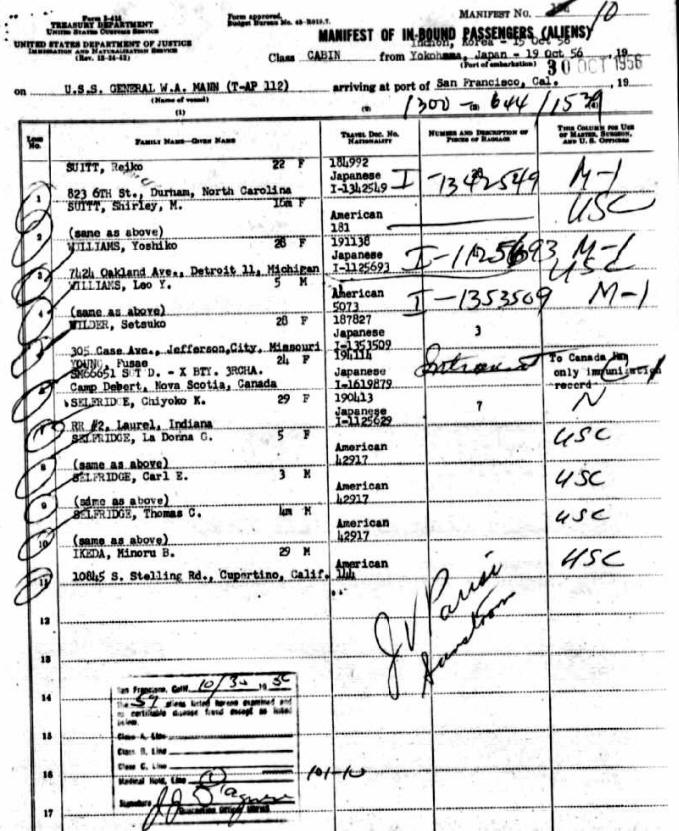 MANIFEST NO. 10
Form I-418
TREASURY DEPARTMENT
UNITED STATES CUSTOMS SERVICE
UNITED STATES DEPARTMENT OF JUSTICE
IMMIGRATION AND NATURALIZATION SERVICE
Form approved.
MANIFEST OF IN-BOUND PASSENGERS (ALIENS)
Inchon, Korea - 15 Oct 56
Class CABIN from Yokohama, Japan - 19 Oct 56, 19
(Port of embarkation)
30 OCT 1956
on U.S.S. GENERAL W.A. MANN (T-AP 112) arriving at port of San Francisco, Cal., 19
(Name of vessel)
1300 - 644 / 1539
(1) (2) (3) (4)
LINE No. FAMILY NAME—GIVEN NAME TRAVEL DOC. NO. NATIONALITY NUMBER AND DESCRIPTION OF PIECES OF BAGGAGE THIS COLUMN FOR USE OF MASTER, SURGEON, AND U. S. OFFICERS
SUITT, Reiko 22 F 184992
Japanese
1 823 6TH St., Durham, North Carolina I-1342549 I-1342549 M-1
SUITT, Shirley, M. F American USC
2 (same as above) 181
WILLIAMS, Yoshiko 28 F 191138
Japanese I-1125693 M-1
3 7424 Oakland Ave., Detroit 11, Michigan I-1125693 USC
WILLIAMS, Leo Y. 5 M American
4 (same as above) 5073 I-1353509 M-1
WILDER, Setsuko 28 F 187827
Japanese 3
5 305 Case Ave., Jefferson,City, Missouri I-1353509
YOUNG, Fusae 24 F 194114 To Canada
SM66651 - X BTY. 3RCHA. Japanese only immunization
6 Camp Debert, Nova Scotia, Canada I-1619879 record
SELFRIDGE, Chiyoko K. 29 F 190413
Japanese 7 N
7 RR #2, Laurel, Indiana I-1125629
SELFRIDGE, La Donna G. 5 F American USC
8 (same as above) 42917
SELFRIDGE, Carl E. 3 M American USC
9 (same as above) 42917
SELFRIDGE, Thomas C. 4m M American USC
10 (same as above) 42917
IKEDA, Minoru B. 29 M American USC
11 10845 S. Stelling Rd., Cupertino, Calif. 144
J V Parisi
12
13
San Francisco, Calif. 10/30 1956
14 The 59 aliens listed hereon examined and
no certifiable disease found except as listed
below.
15 Class A, Line
Class B, Line
Class C, Line
16 Medical Hold, Line 101-10
Signature
17 Quarantine Officer